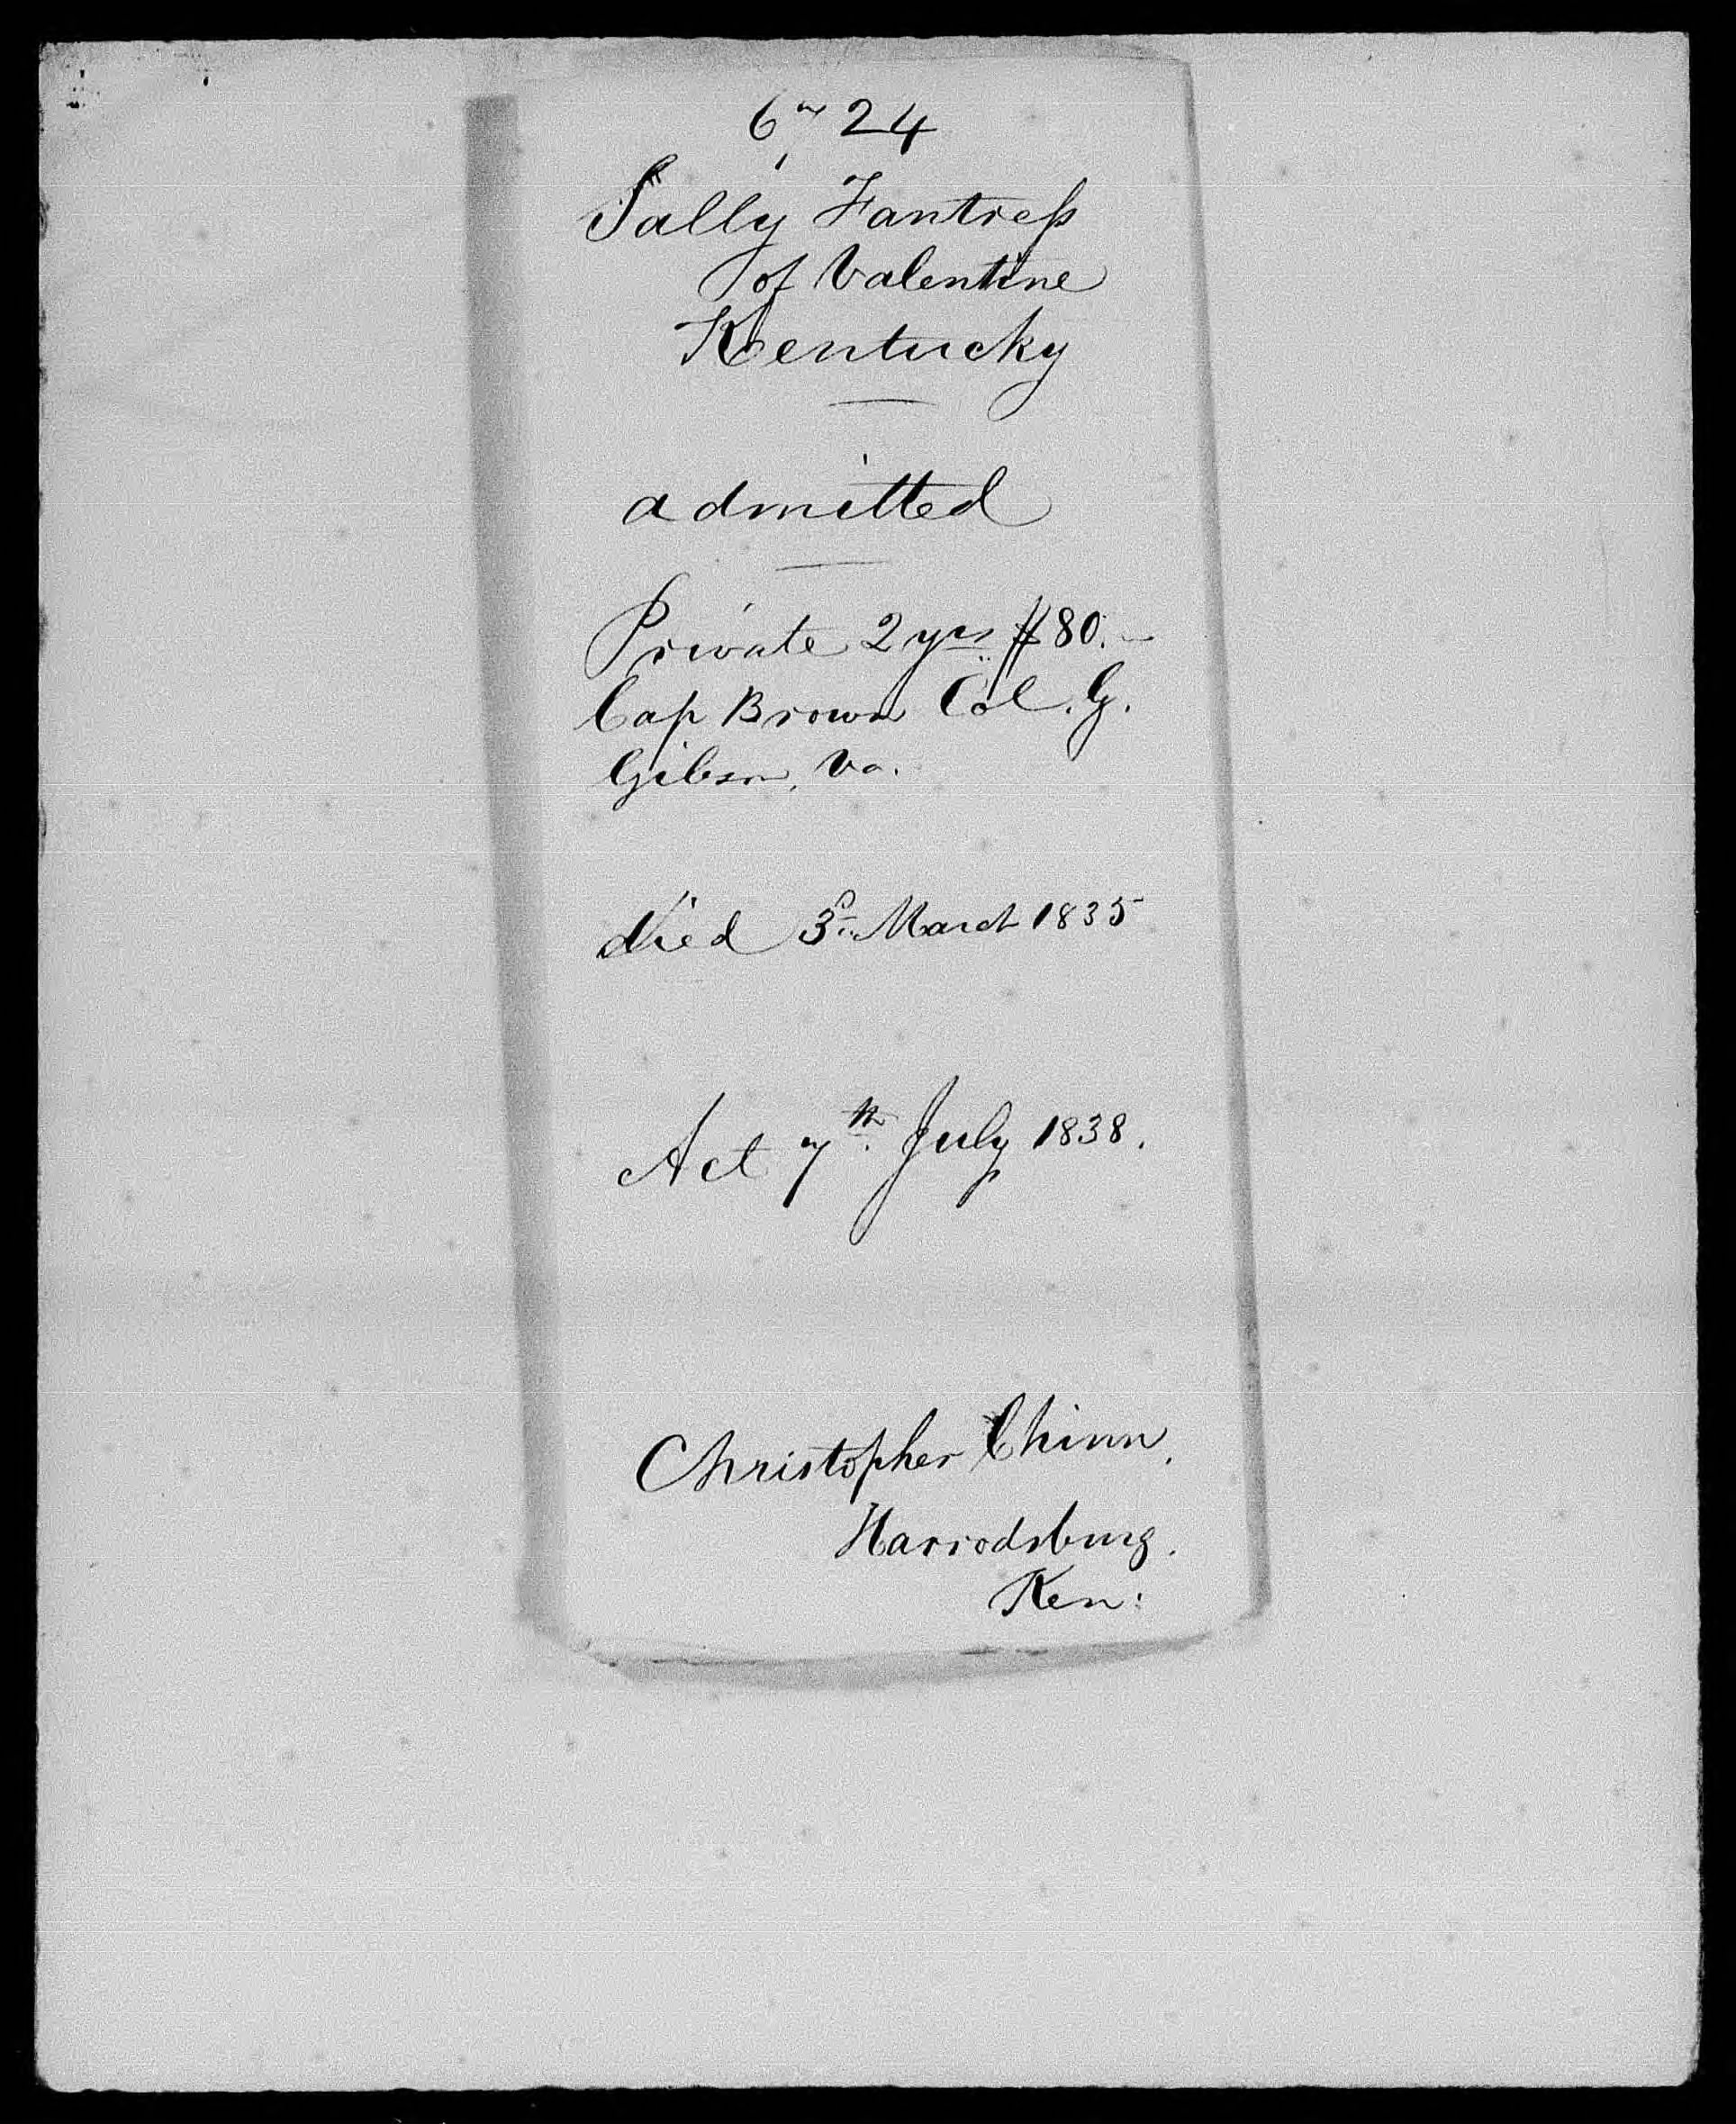 6,724
Sally Fantress
of Valentine
Kentucky
admitted
Private 2 yrs $80.
Cap Brown Col. G.
Gibson, Va.
died 3d March 1835
Act 7th July 1838.
Christopher Chinn,
Harrodsburg.
Ken: